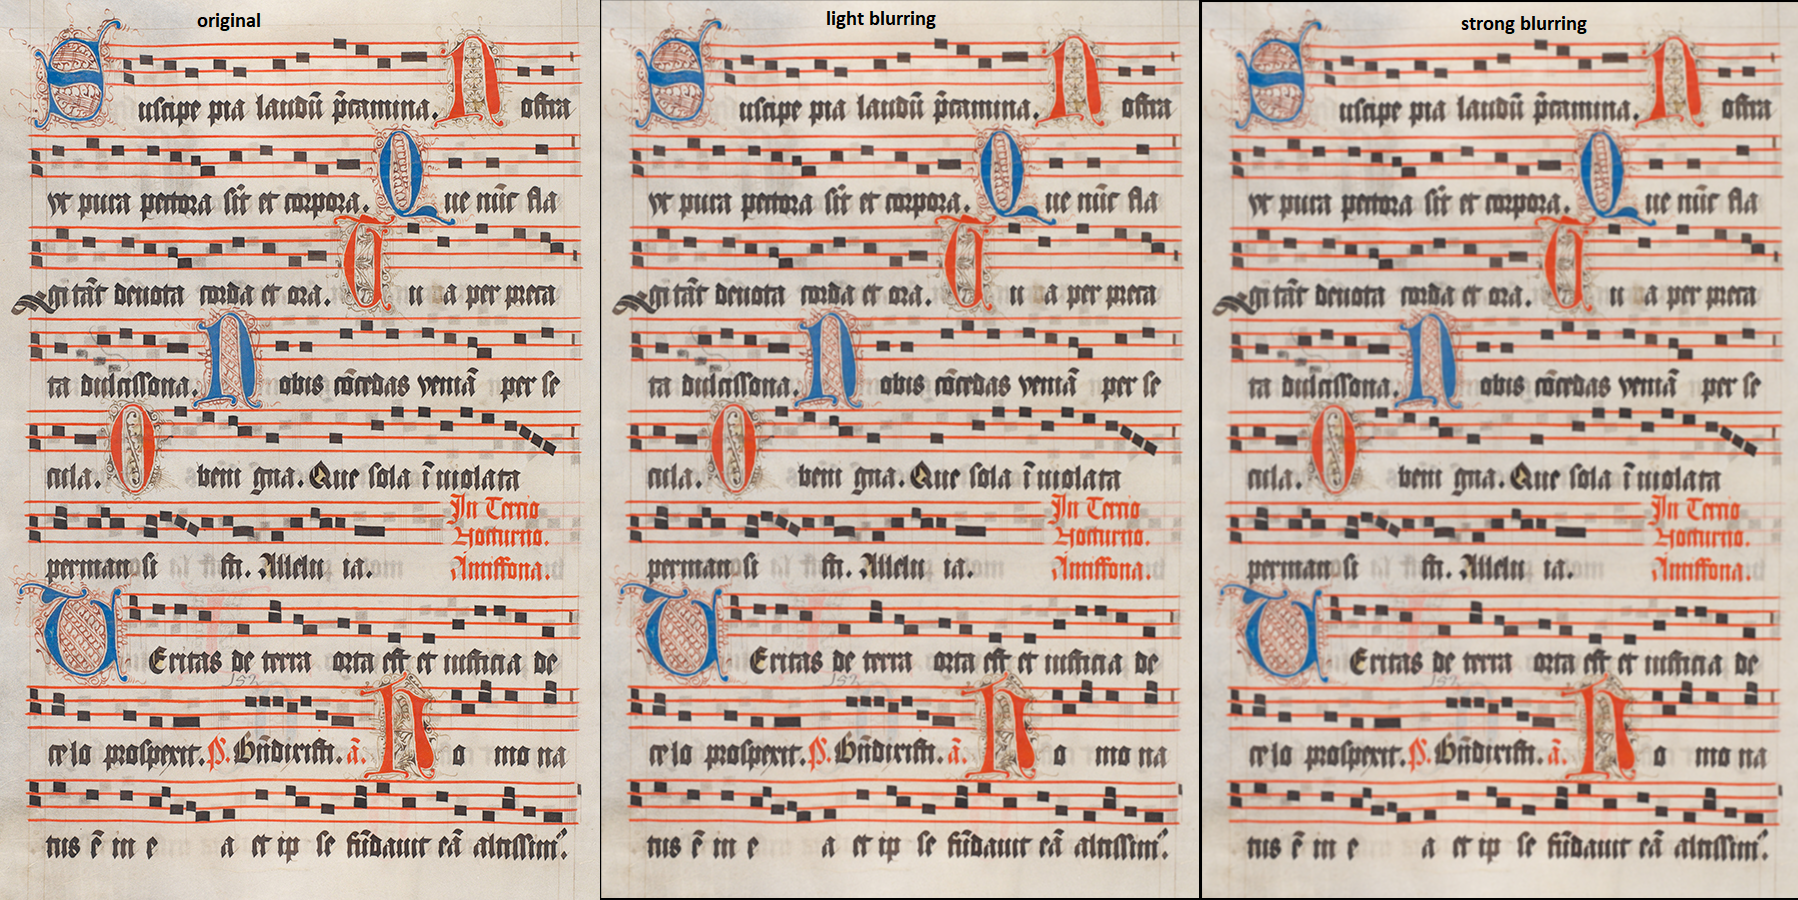 original
Suscipe pia laudũ p̃camina. Nostra
vt pura pectora sĩt et corpora. Que nũc fla
gitãt deuota corda et ora. Tu a per preca
ta dulcissona. Nobis cõcedas veniã per se
cula. O beni gna. Que sola ĩ uiolata
In Tercio
Nocturno.
permansi sti. Allelu ia. Antiffona.
Ueritas de terra orta est et iusticia de
celo prospexit. ps. Bñdixisti. ã. Ho mo na
tus ẽ in e a et ip se fũdauit eã altissimꝰ.
light blurring
Suscipe pia laudũ p̃camina. Nostra
vt pura pectora sĩt et corpora. Que nũc fla
gitãt deuota corda et ora. Tu a per preca
ta dulcissona. Nobis cõcedas veniã per se
cula. O beni gna. Que sola ĩ uiolata
In Tercio
Nocturno.
permansi sti. Allelu ia. Antiffona.
Ueritas de terra orta est et iusticia de
celo prospexit. ps. Bñdixisti. ã. Ho mo na
tus ẽ in e a et ip se fũdauit eã altissimꝰ.
strong blurring
Suscipe pia laudũ p̃camina. Nostra
vt pura pectora sĩt et corpora. Que nũc fla
gitãt deuota corda et ora. Tu a per preca
ta dulcissona. Nobis cõcedas veniã per se
cula. O beni gna. Que sola ĩ uiolata
In Tercio
Nocturno.
permansi sti. Allelu ia. Antiffona.
Ueritas de terra orta est et iusticia de
celo prospexit. ps. Bñdixisti. ã. Ho mo na
tus ẽ in e a et ip se fũdauit eã altissimꝰ.